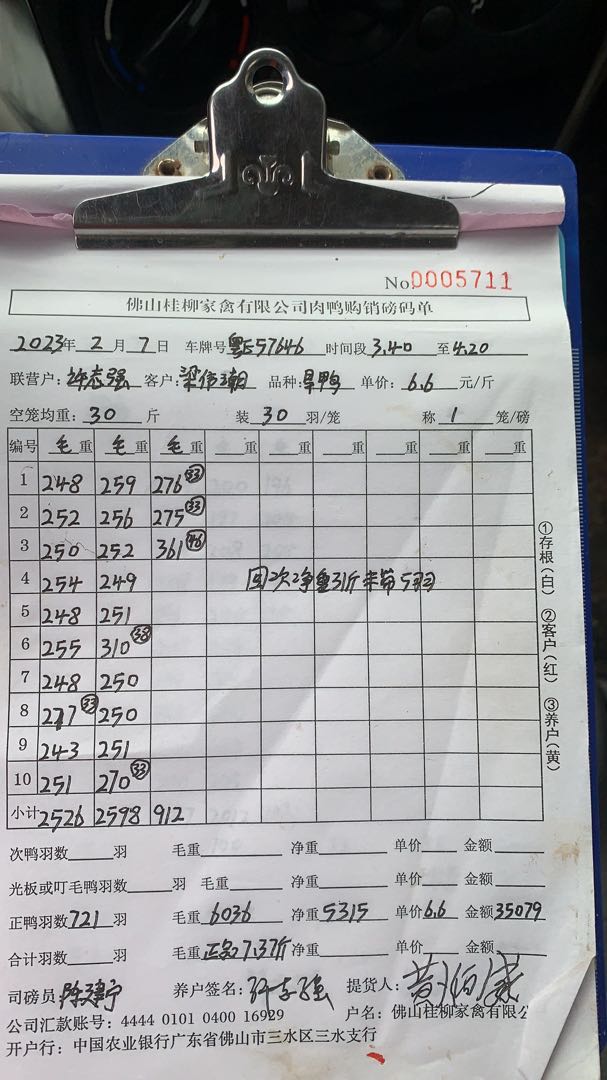 No 0005711
佛山桂柳家禽有限公司肉鸭购销磅码单
2023年 2 月 7 日 车牌号 粤E57646 时间段 3.40 至 4.20
联营户: 许志强 客户: 梁伟潮 品种: 旱鸭 单价: 6.6 元/斤
空笼均重: 30 斤 装 30 羽/笼 称 1 笼/磅
编号 毛重 毛重 毛重 重 重 重 重 重
1 248 259 276 33
2 252 256 275 33
3 250 252 361 46
4 254 249 回2次净重31斤 5羽
5 248 251
6 255 310 38
7 248 250
8 277 33 250
9 243 251
10 251 270 33
小计 2526 2598 912
①存根(白) ②客户(红) ③养户(黄)
次鸭羽数 羽 毛重 净重 单价 金额
光板或叮毛鸭羽数 羽 毛重 净重 单价 金额
正鸭羽数 721 羽 毛重 6036 净重 5315 单价 6.6 金额 35079
合计羽数 羽 毛重 7.37斤 净重 单价 金额
司磅员 陈建宁 养户签名: 许志强 提货人: 黄
公司汇款账号: 4444 0101 0400 16929 户名: 佛山桂柳家禽有限公
开户行: 中国农业银行广东省佛山市三水区三水支行